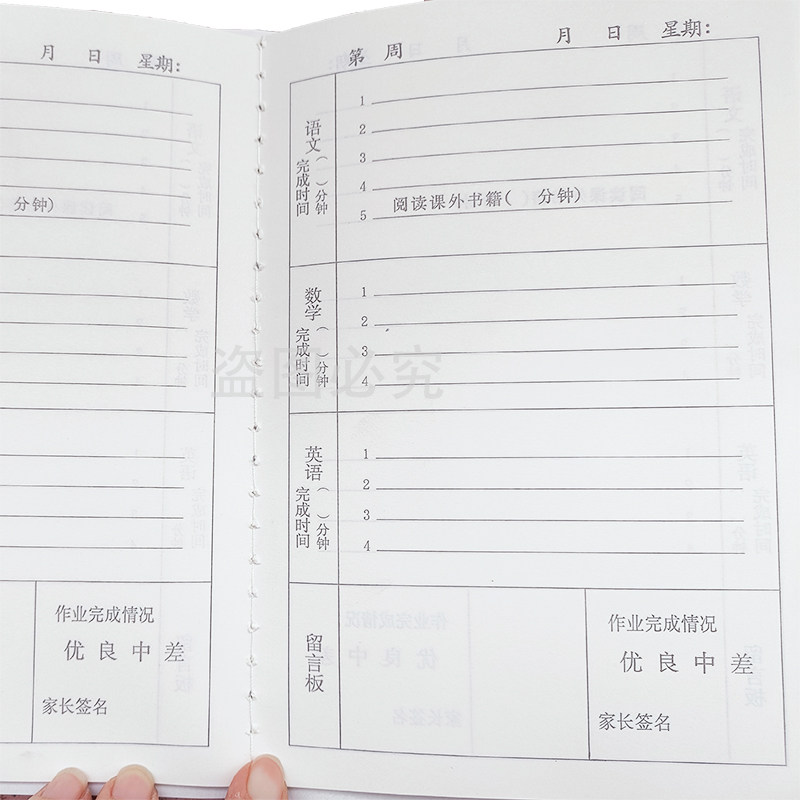 月 日 星期:
分钟)
作业完成情况
优 良 中 差
家长签名
第 周 月 日 星期:
语文
完成时间
( )分钟
1
2
3
4
5 阅读课外书籍( 分钟)
数学
完成时间
( )分钟
1
2
3
4
英语
完成时间
( )分钟
1
2
3
4
留言板
作业完成情况
优 良 中 差
家长签名
盗图必究